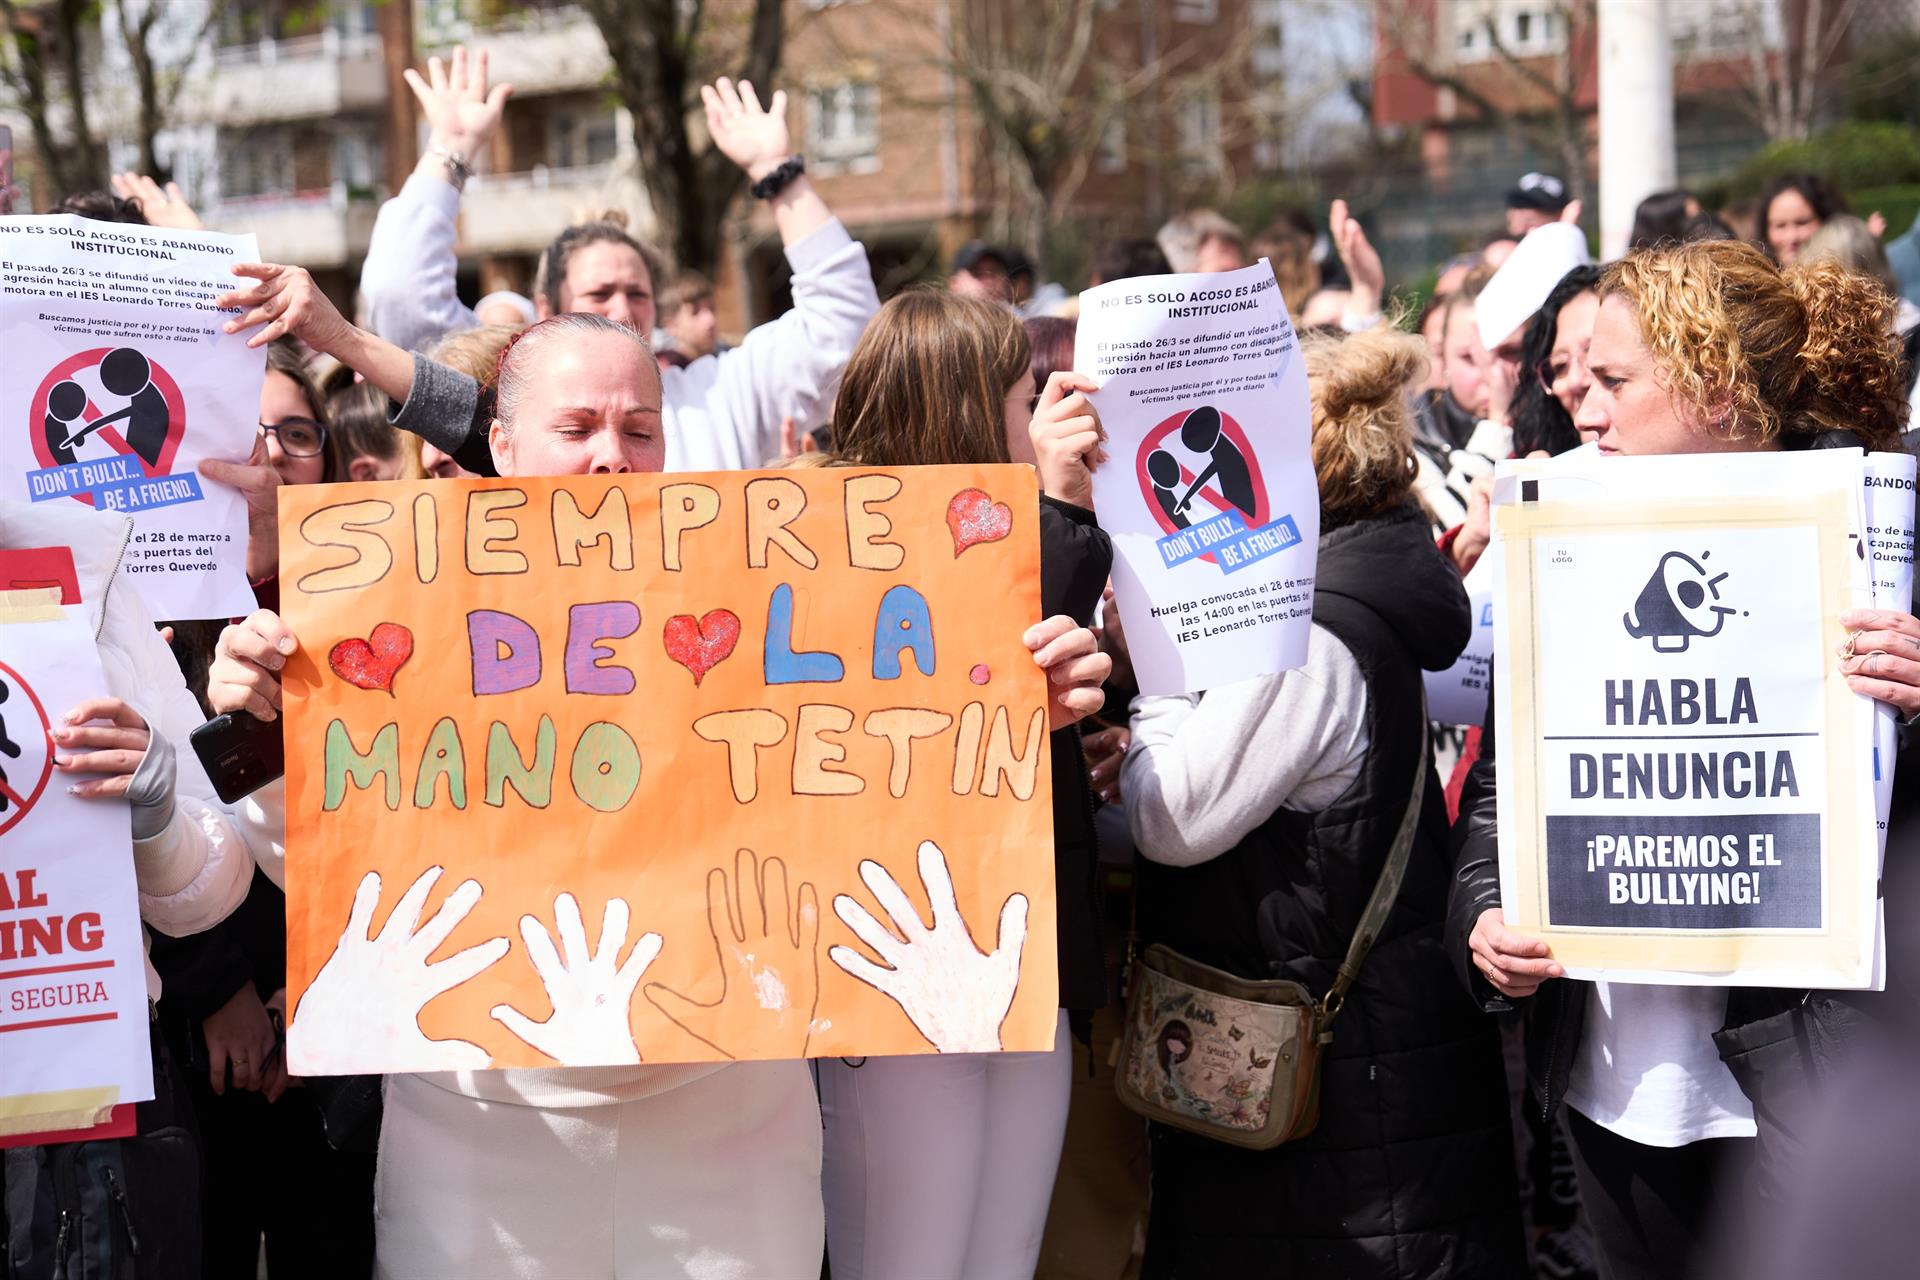 NO ES SOLO ACOSO ES ABANDONO
INSTITUCIONAL
El pasado 26/3 se difundió un vídeo de una
agresión hacia un alumno con discapac
motora en el IES Leonardo Torres Quevedo.
Buscamos justicia por él y por todas las
víctimas que sufren esto a diario
DON'T BULLY...
BE A FRIEND.
el 28 de marzo a
as puertas del
Torres Quevedo
AL
ING
R SEGURA
SIEMPRE
DE LA
MANO TETÍN
NO ES SOLO ACOSO ES ABANDO
INSTITUCIONAL
El pasado 26/3 se difundió un vídeo de una
agresión hacia un alumno con discapacidad
motora en el IES Leonardo Torres Quevedo.
Buscamos justicia por él y por todas las
víctimas que sufren esto a diario
DON'T BULLY...
BE A FRIEND.
Huelga convocada el 28 de marzo a
las 14:00 en las puertas del
IES Leonardo Torres Quevedo
TU
LOGO
HABLA
DENUNCIA
¡PAREMOS EL
BULLYING!
BANDON
eo de un
scapaci
Queved
s las